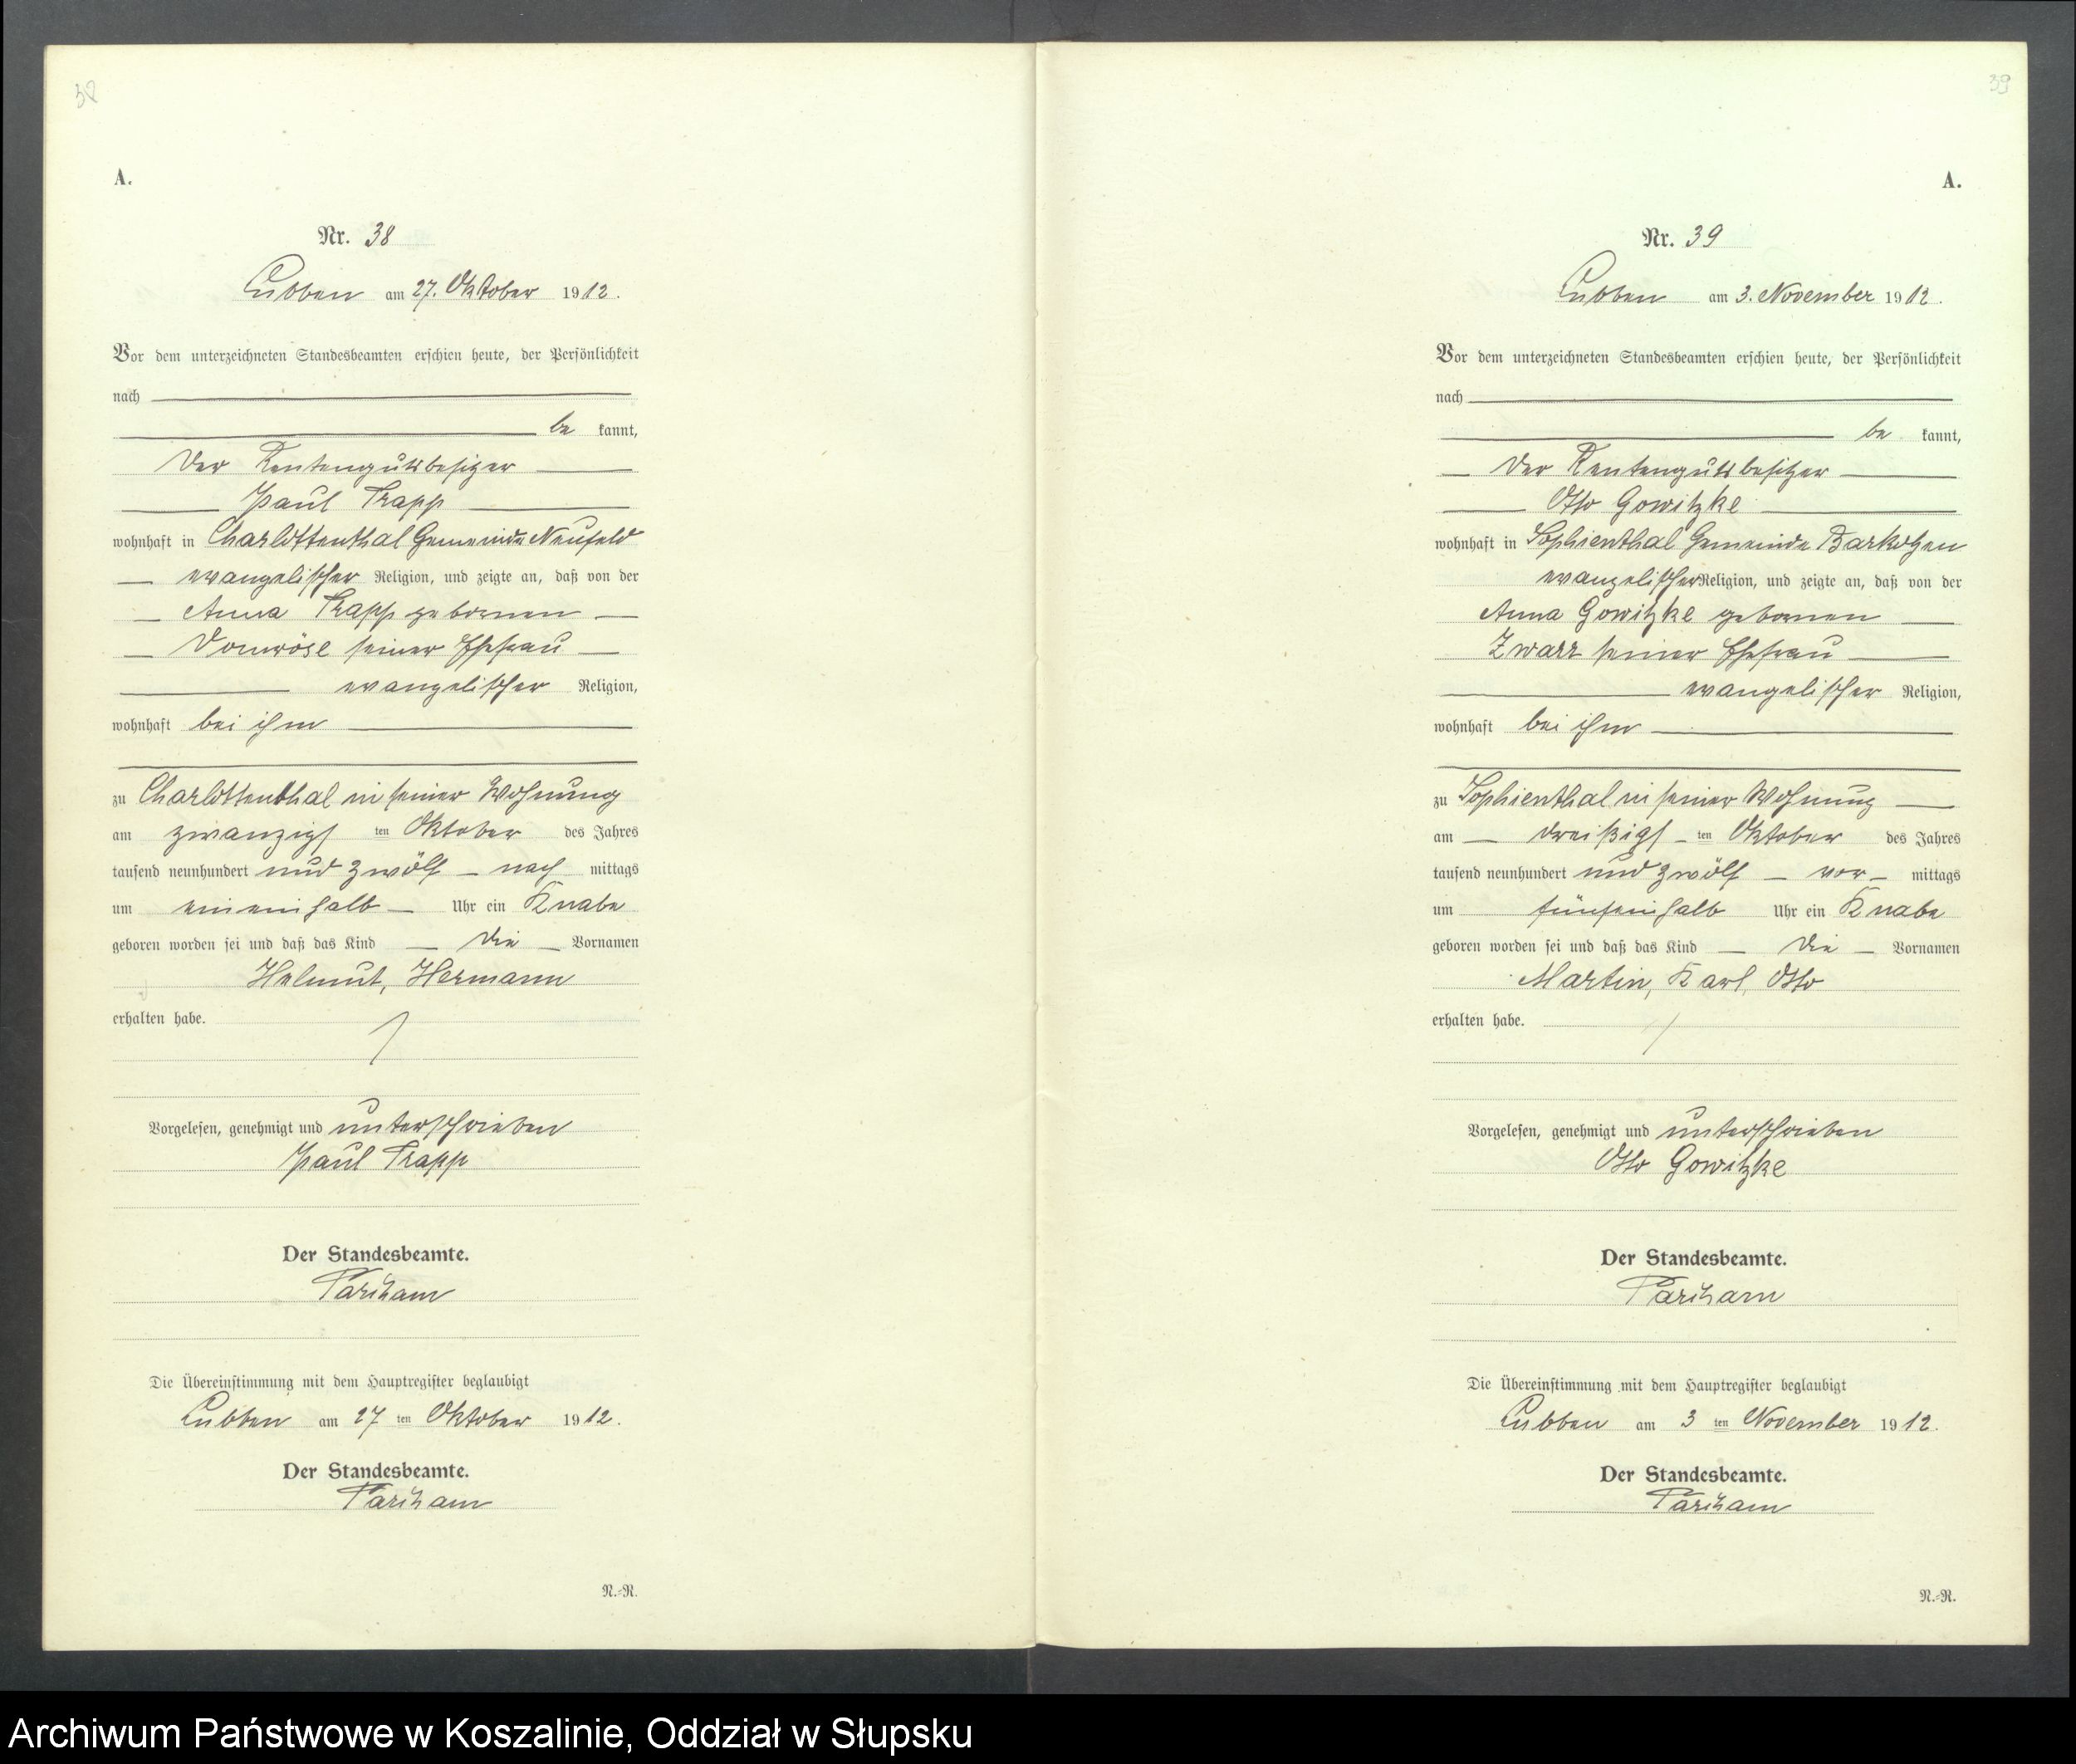 38
A.
Nr. 38
Lubben am 27. Oktober 1912.
Vor dem unterzeichneten Standesbeamten erschien heute, der Persönlichkeit
nach
be kannt,
der Rentengutsbesitzer
Paul Trapp
wohnhaft in Charlottenthal Gemeinde Neufeld
evangelischer Religion, und zeigte an, daß von der
Anna Trapp gebornen
Domröse seiner Ehefrau
evangelischer Religion,
wohnhaft bei ihm
zu Charlottenthal in seiner Wohnung
am zwanzigs ten Oktober des Jahres
tausend neunhundert und zwölf nach mittags
um eineinhalb Uhr ein Knabe
geboren worden sei und daß das Kind die Vornamen
Helmut, Hermann
erhalten habe.
Vorgelesen, genehmigt und unterschrieben
Paul Trapp
Der Standesbeamte.
Die Übereinstimmung mit dem Hauptregister beglaubigt
Lubben am 27 ten Oktober 1912.
Der Standesbeamte.
N.-R.
39
A.
Nr. 39
Lubben am 3. November 1912.
Vor dem unterzeichneten Standesbeamten erschien heute, der Persönlichkeit
nach
be kannt,
der Rentengutsbesitzer
Otto Gowitzke
wohnhaft in Sophienthal Gemeinde Barkotzen
evangelischer Religion, und zeigte an, daß von der
Anna Gowitzke gebornen
Zwarr seiner Ehefrau
evangelischer Religion,
wohnhaft bei ihm
zu Sophienthal in seiner Wohnung
am dreißigs ten Oktober des Jahres
tausend neunhundert und zwölf vor mittags
um fünfeinhalb Uhr ein Knabe
geboren worden sei und daß das Kind die Vornamen
Martin, Karl, Otto
erhalten habe.
Vorgelesen, genehmigt und unterschrieben
Otto Gowitzke
Der Standesbeamte.
Die Übereinstimmung mit dem Hauptregister beglaubigt
Lubben am 3 ten November 1912.
Der Standesbeamte.
N.-R.
Archiwum Państwowe w Koszalinie, Oddział w Słupsku